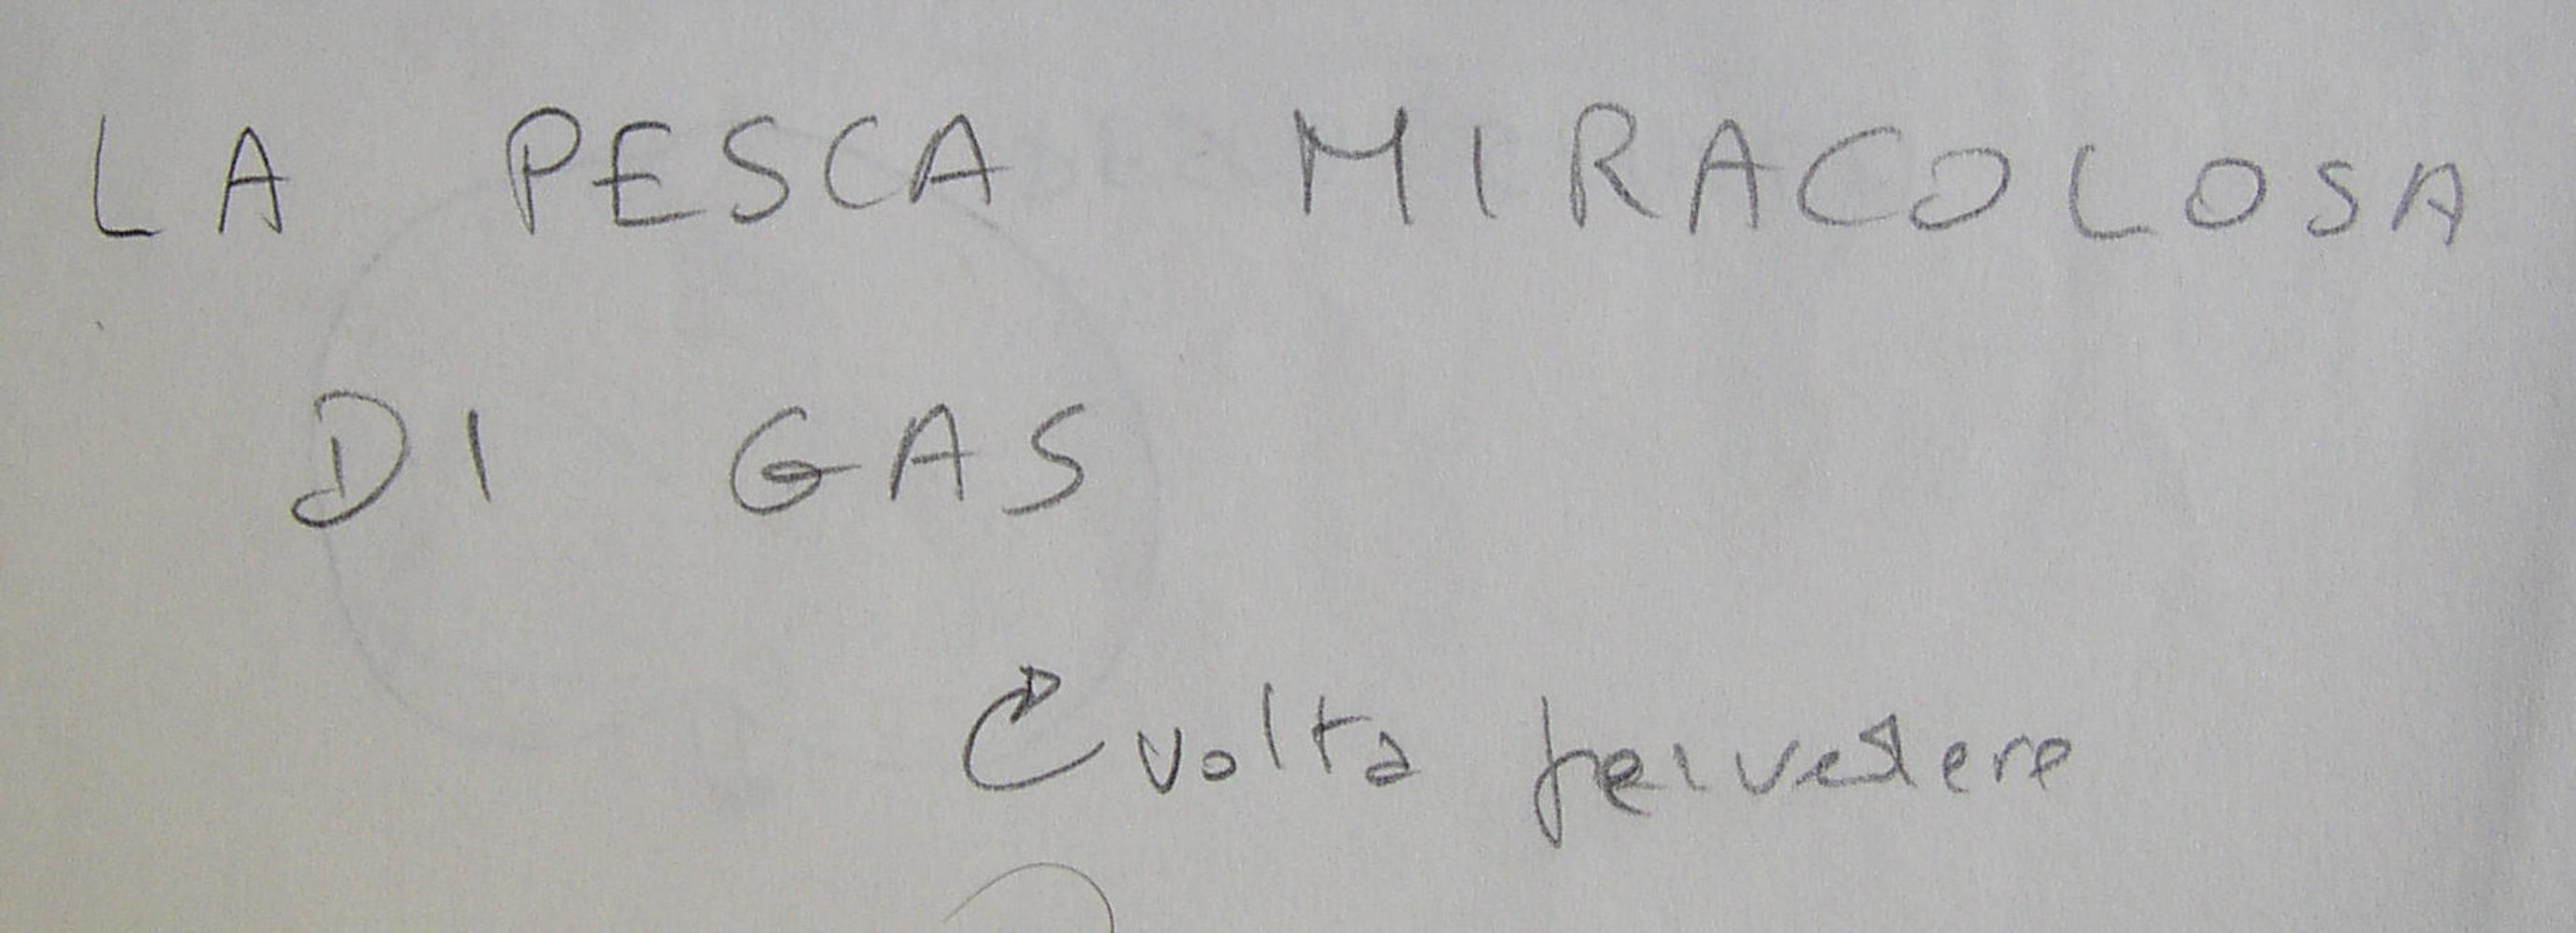 LA PESCA MIRACOLOSA
DI GAS
volta per vedere